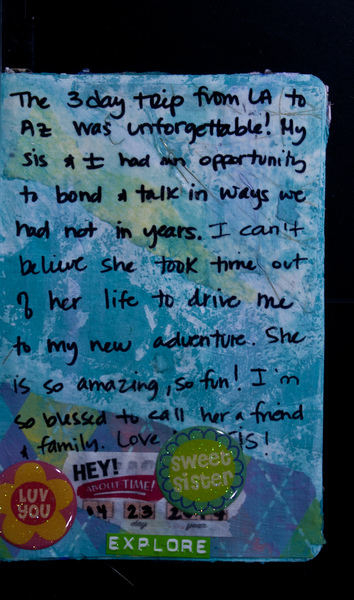 The 3 day trip from LA to
AZ was unforgettable! My
sis & I had an opportunity
to bond & talk in ways we
had not in years. I can't
believe she took time out
of her life to drive me
to my new adventure. She
is so amazing, so fun! I'm
so blessed to call her a friend
& family. Love SIS!
HEY!
ABOUT TIME!
sweet
sister
LUV
YOU
04 23
day year
EXPLORE